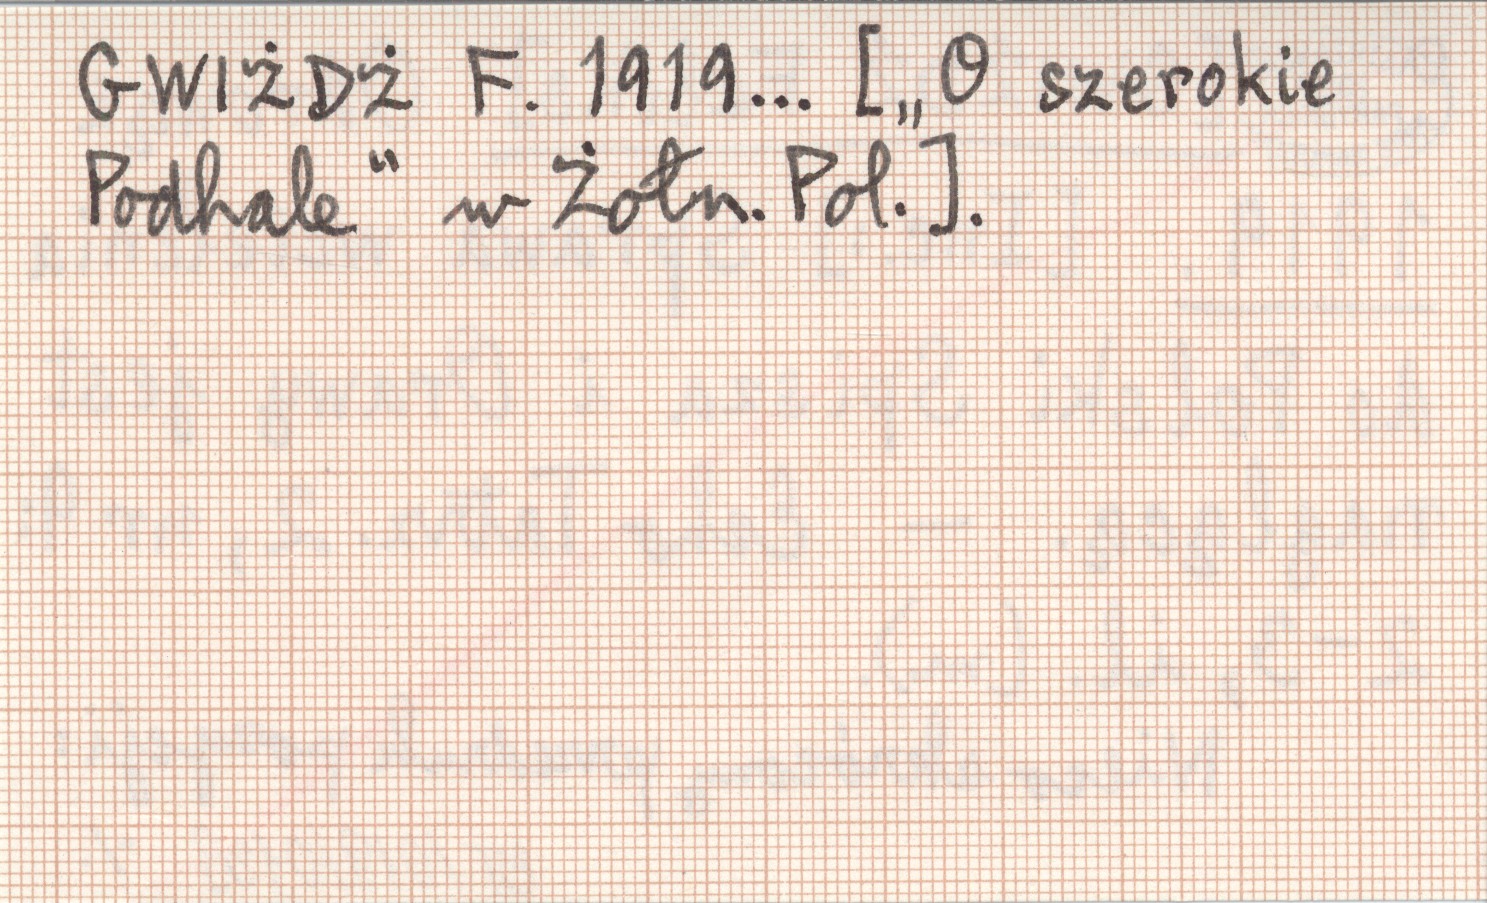 GWIŻDŻ F. 1919... [„O szerokie
Podhale“ w Żołn. Pol.].